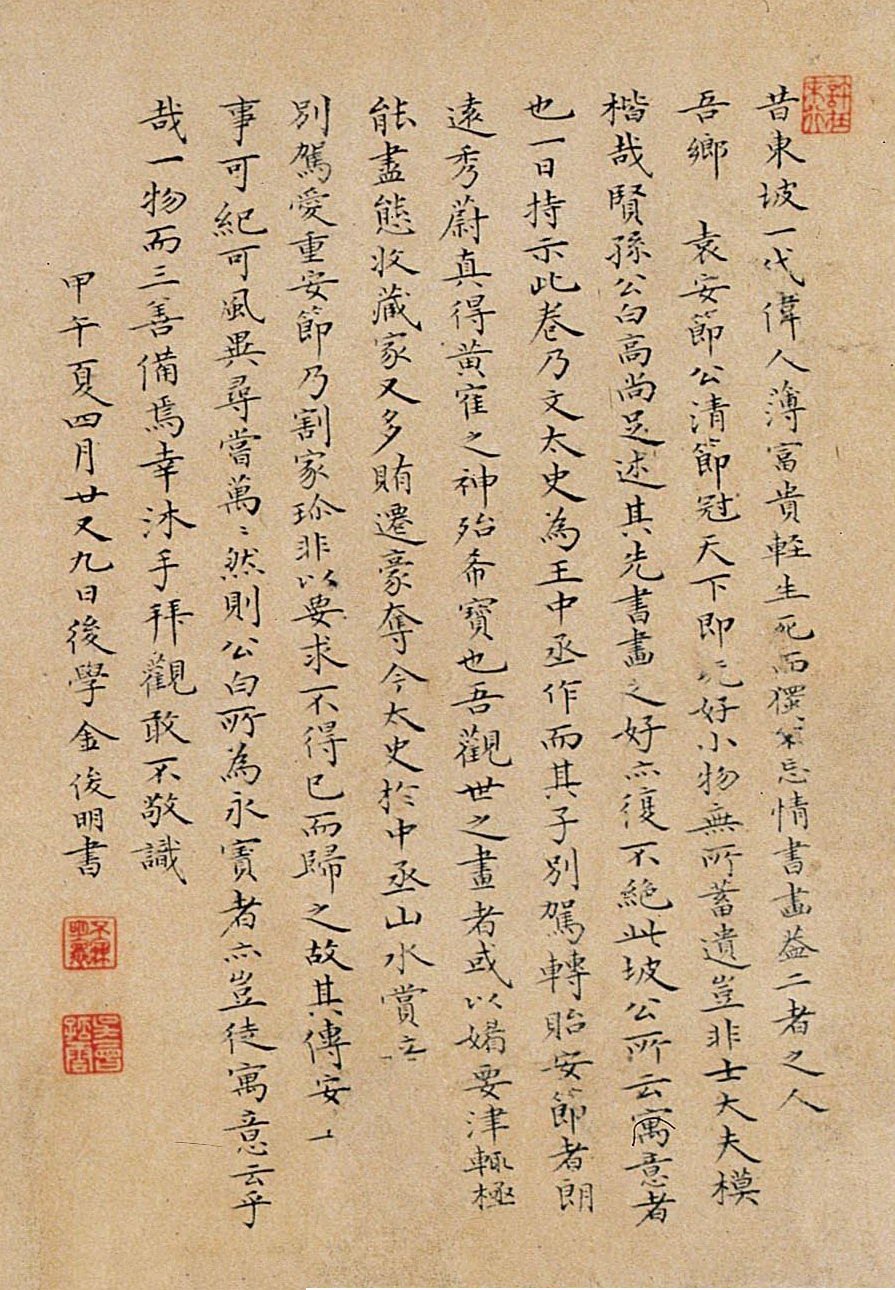 昔東坡一代偉人薄富貴輕生死而獨忘情書畫益二者之人
吾鄉　袁安節公清節冠天下即玩好小物無所蓄遺豈非士大夫模
楷哉賢孫公白高尚足述其先書畫之好亦復不絕此坡公所云寓意者
也一日持示此卷乃文太史為王中丞作而其子別駕轉貽安節者朗
遠秀蔚真得黃寉之神殆希寶也吾觀世之畫者或以媚要津輒極
能盡態收藏家又多賄遷豪奪今太史於中丞山水賞
別駕愛重安節乃割家珍非以要求不得已而歸之故其傳安
事可紀可風異尋嘗萬〻然則公白所為永寶者亦豈徒寓意云乎
哉一物而三善備焉幸沐手拜觀敢不敬識
甲午夏四月廿又九日後學金俊明書